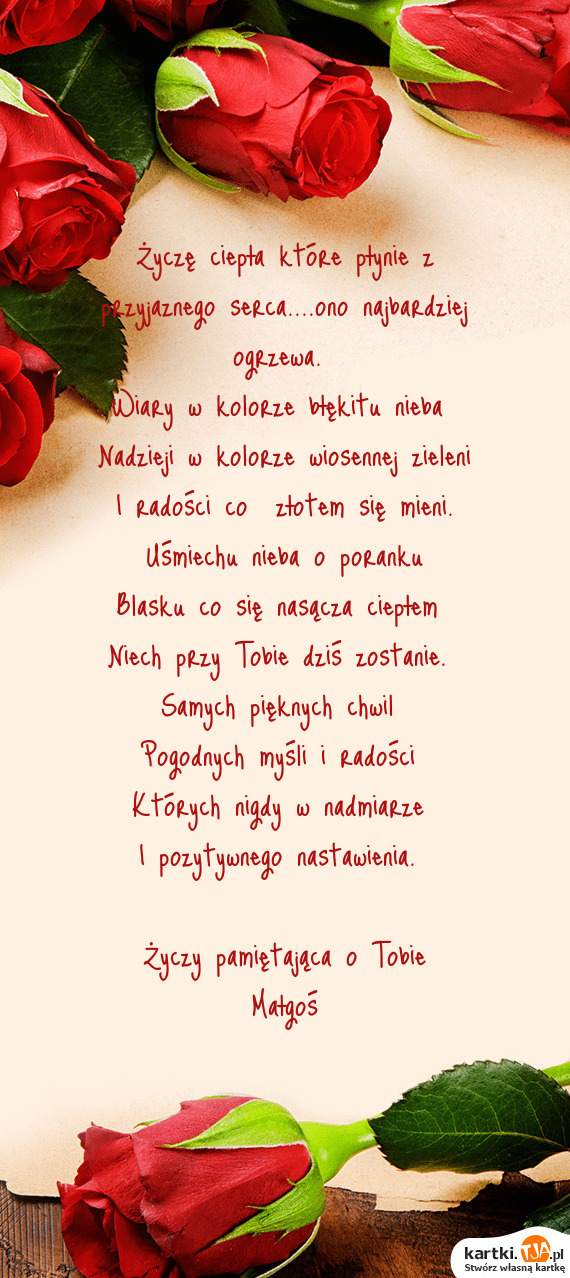 Życzę ciepła które płynie z
przyjaznego serca....ono najbardziej
ogrzewa.
Wiary w kolorze błękitu nieba
Nadzieji w kolorze wiosennej zieleni
I radości co złotem się mieni.
Uśmiechu nieba o poranku
Blasku co się nasącza ciepłem
Niech przy Tobie dziś zostanie.
Samych pięknych chwil
Pogodnych myśli i radości
Których nigdy w nadmiarze
I pozytywnego nastawienia.
Życzy pamiętająca o Tobie
Małgoś
kartki.TJA.pl
Stwórz własną kartkę